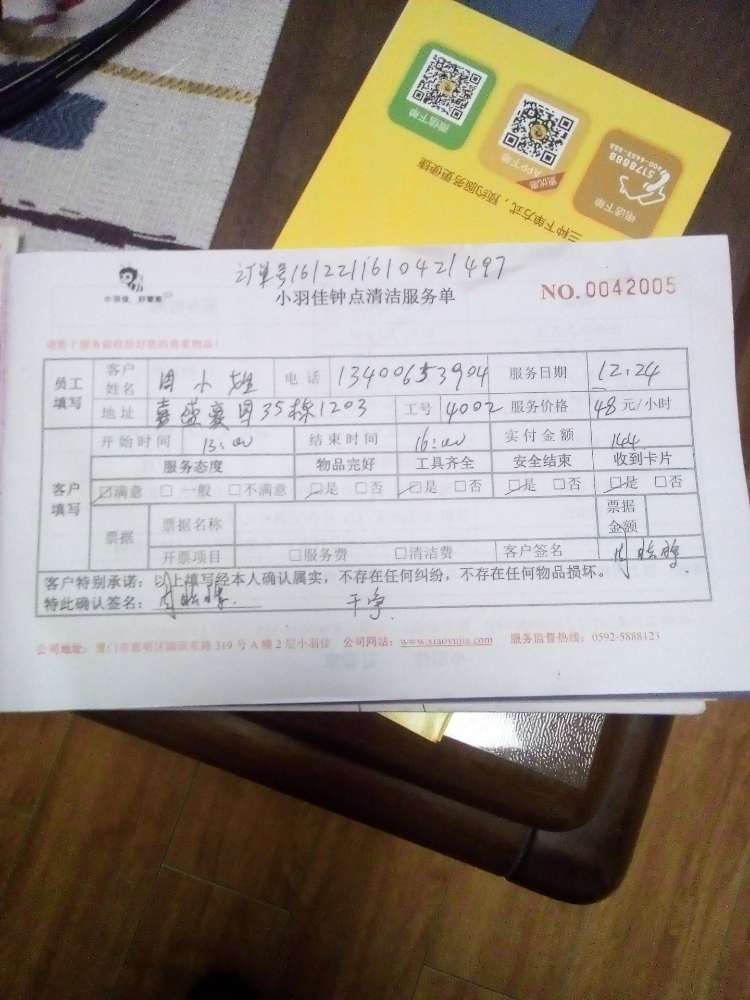 微信下单
APP下单
更优惠
电话下单
5178888
三种下单方式，预约服务更便捷
订单号1612211610421497
小羽佳，好管家
小羽佳钟点清洁服务单
NO. 0042005
员工填写 客户姓名 周小姐 电话 13400653904 服务日期 12.24
地址 嘉盛豪园35栋1203 工号 4002 服务价格 48元/小时
客户填写 开始时间 13:00 结束时间 16:00 实付金额 144
服务态度 物品完好 工具齐全 安全结束 收到卡片
☑满意 □一般 □不满意 ☑是 □否 ☑是 □否 ☑是 □否 ☑是 □否
票据 票据名称 票据金额
开票项目 □服务费 □清洁费 客户签名
客户特别承诺：以上填写经本人确认属实，不存在任何纠纷，不存在任何物品损坏。
特此确认签名： 干净
公司地址：厦门市思明区湖滨东路319号A幢2层小羽佳 公司网站：www.xiaoyujia.com 服务监督热线：0592-5888123